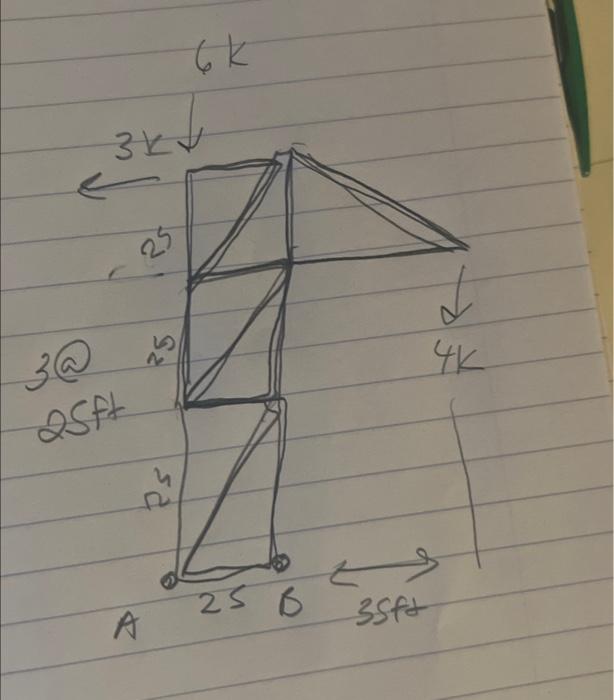 6k
3k
25
3@
25ft
25
4k
25
25
A
B
35ft